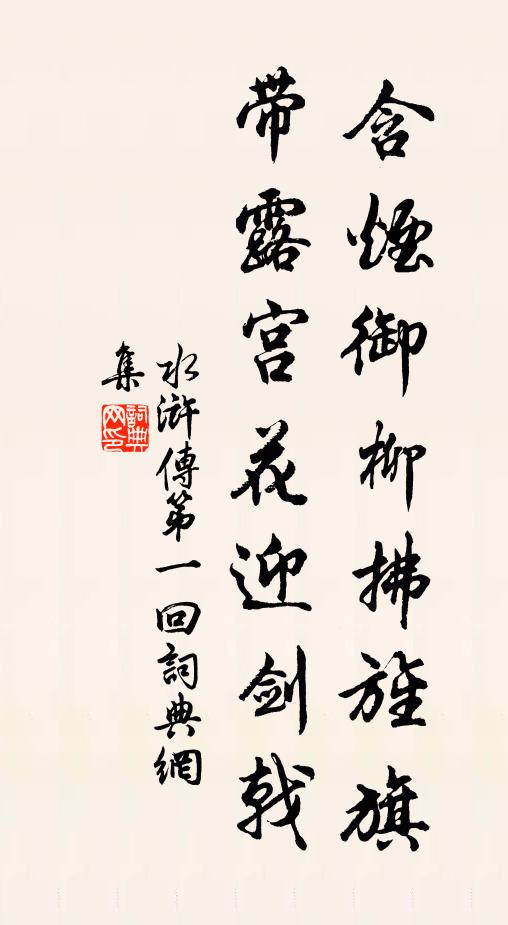 含煙御柳拂旌旗
带露宫花迎剑戟
水滸傳第一回詞典網
集
詞典
网印